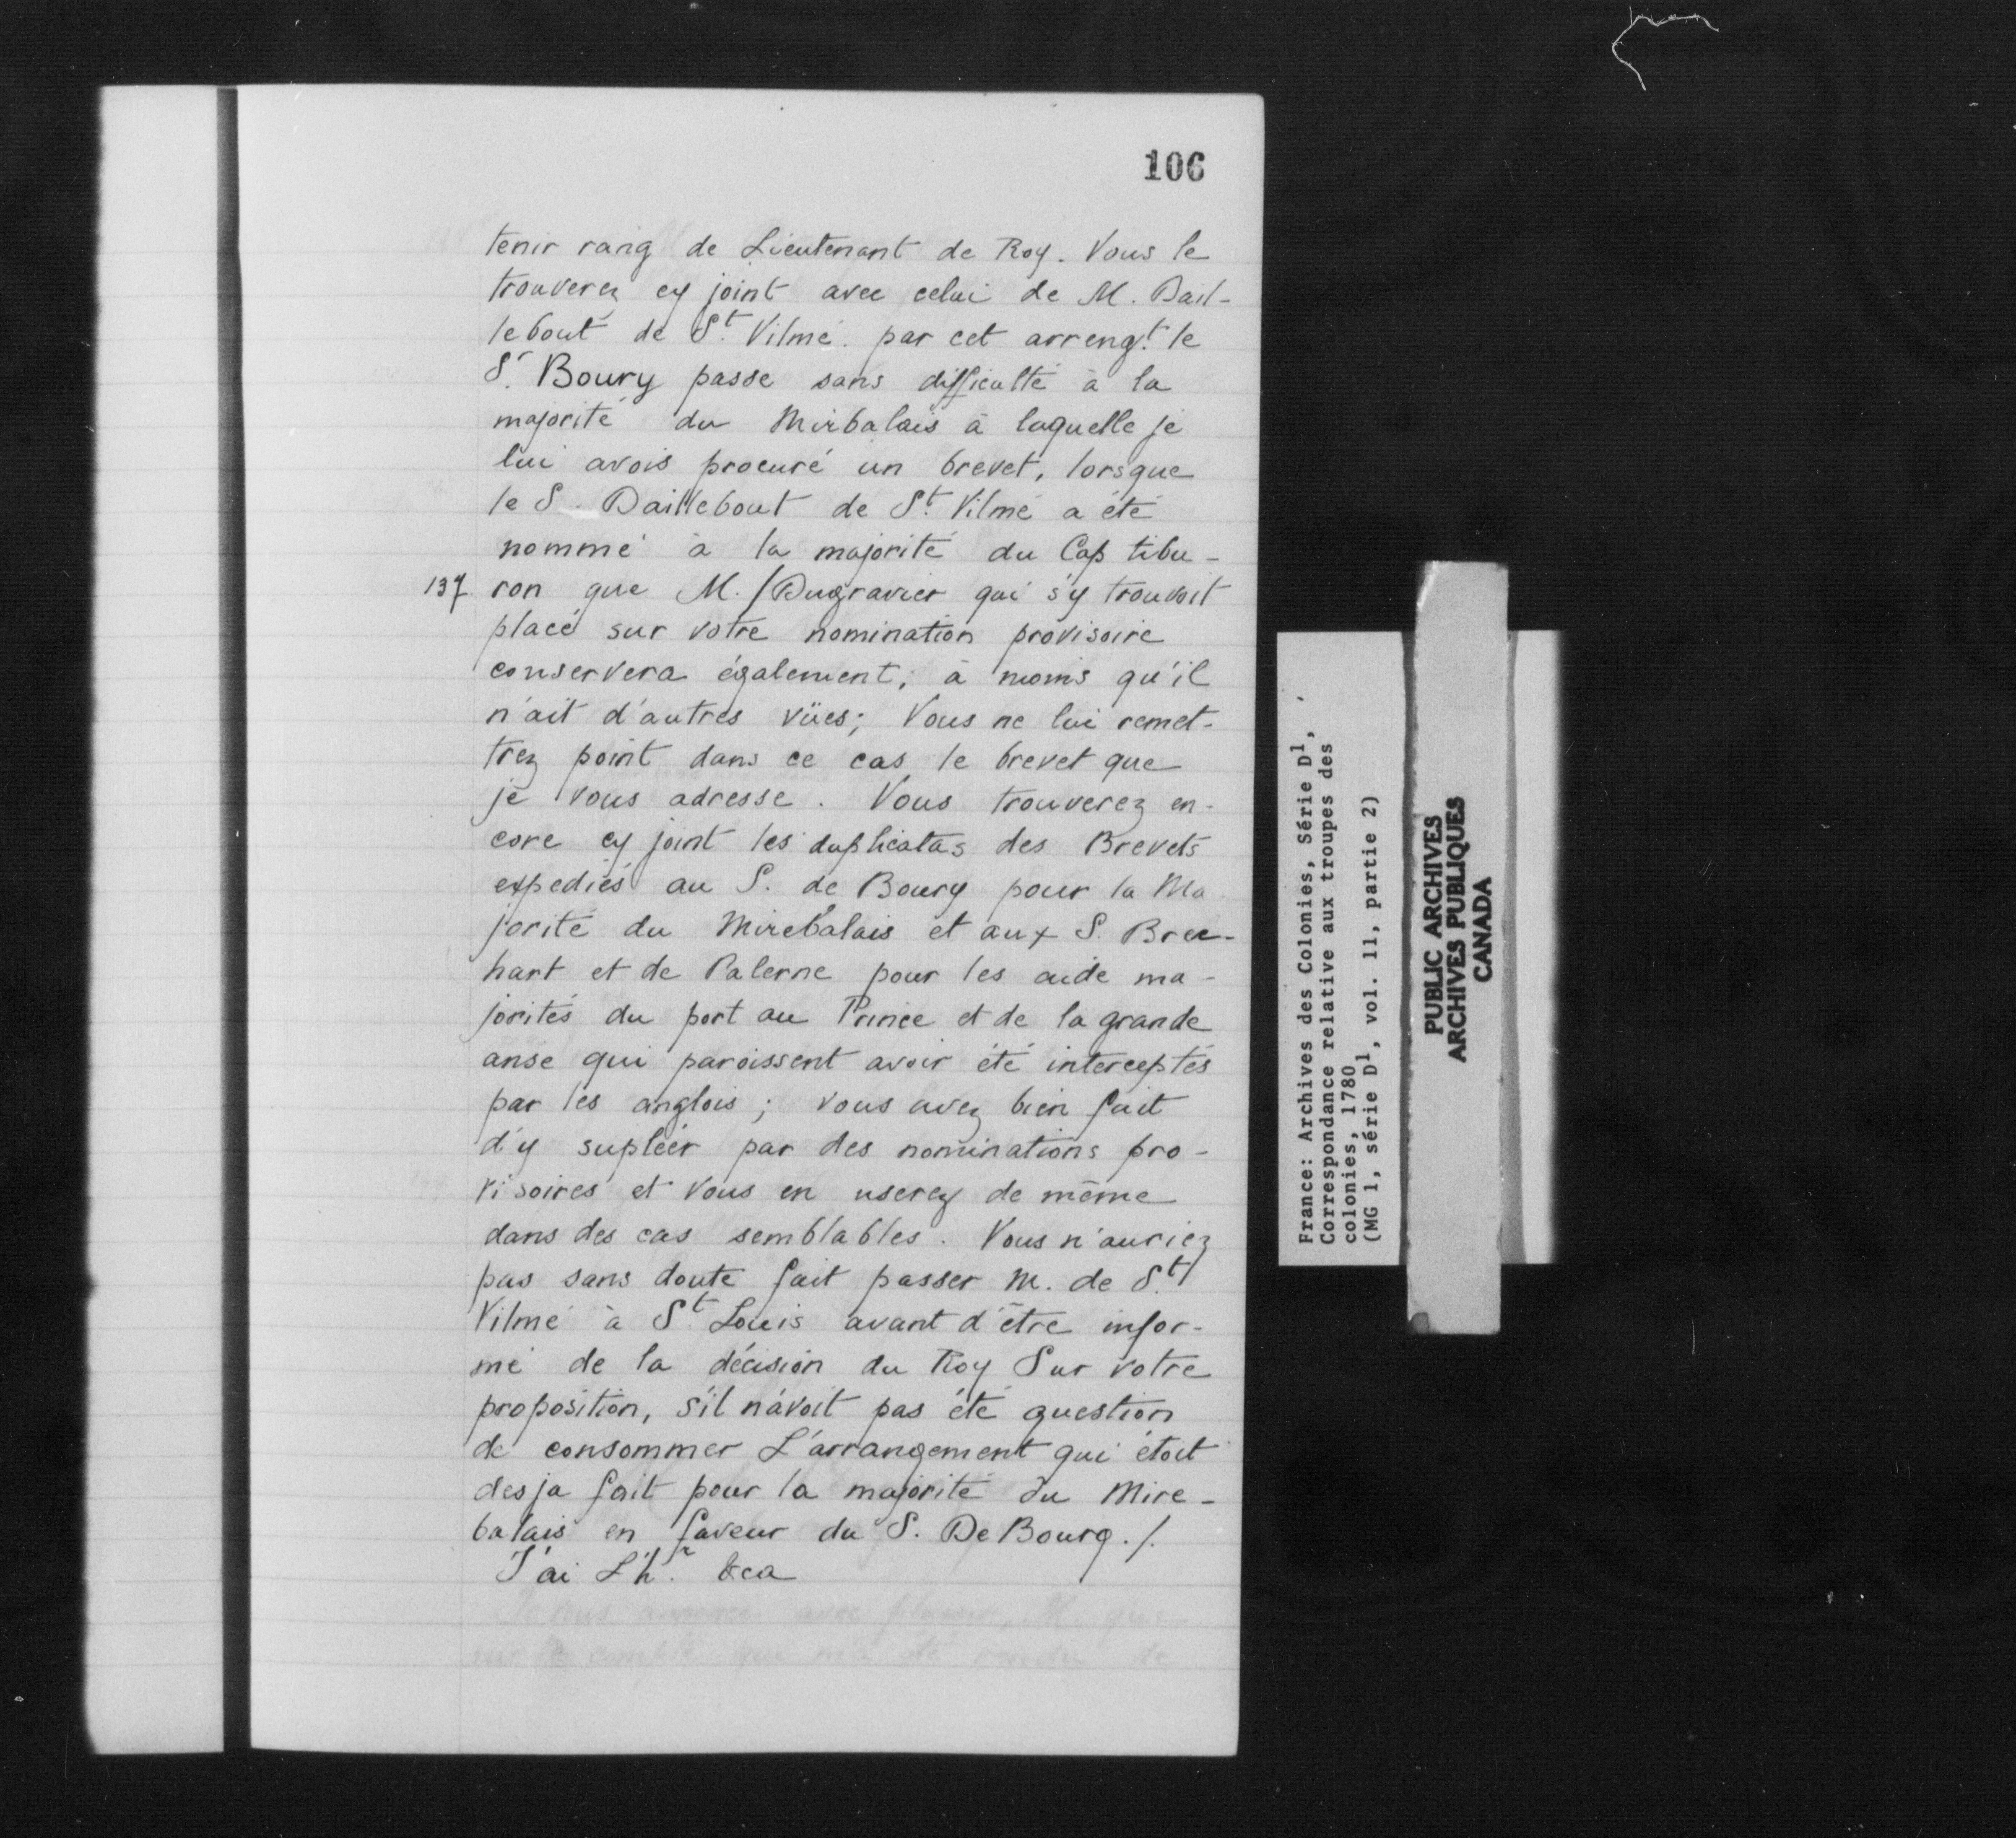 106
tenir rang de Lieutenant de Roy. Vous le
trouverez cy joint avec celui de M. Dail-
lebout de St. Vilmé. par cet arrengt. le
Sr. Boury passe sans difficulté à la
majorité du Mirbalais à laquelle je
lui avois procuré un brevet, lorsque
le S. Daillebout de St. Vilmé a été
nommé à la majorité du Cap tibu-
137 ron que M. /Dugravier qui s'y trouvoit
placé sur votre nomination provisoire
conservera également, à moins qu'il
n'ait d'autres vües; Vous ne lui remet-
trez point dans ce cas le brevet que
je vous adresse. Vous trouverez en-
core cy joint les duplicatas des Brevets
expediés au S. de Boury pour la Ma
jorité du Mirebalais et aux S. Brer-
hart et de Palerne pour les aide ma-
jorités du port au Prince et de la grande
anse qui paroissent avoir été interceptés
par les anglois; vous avez bien fait
d'y supléer par des nominations pro-
visoires et vous en userez de même
dans des cas semblables. Vous n'auriez
pas sans doute fait passer M. de St.
Vilmé à St Louis avant d'être infor-
mé de la décision du Roy Sur votre
proposition, s'il n'avoit pas été question
de consommer L'arrangement qui étoit
desja fait pour la majorité du Mire-
balais en faveur du S. De Bourg./.
J'ai L'hr. &ca
France: Archives des Colonies, Série D1,
Correspondance relative aux troupes des
colonies, 1780
(MG 1, série D1, vol. 11, partie 2)
PUBLIC ARCHIVES
ARCHIVES PUBLIQUES
CANADA